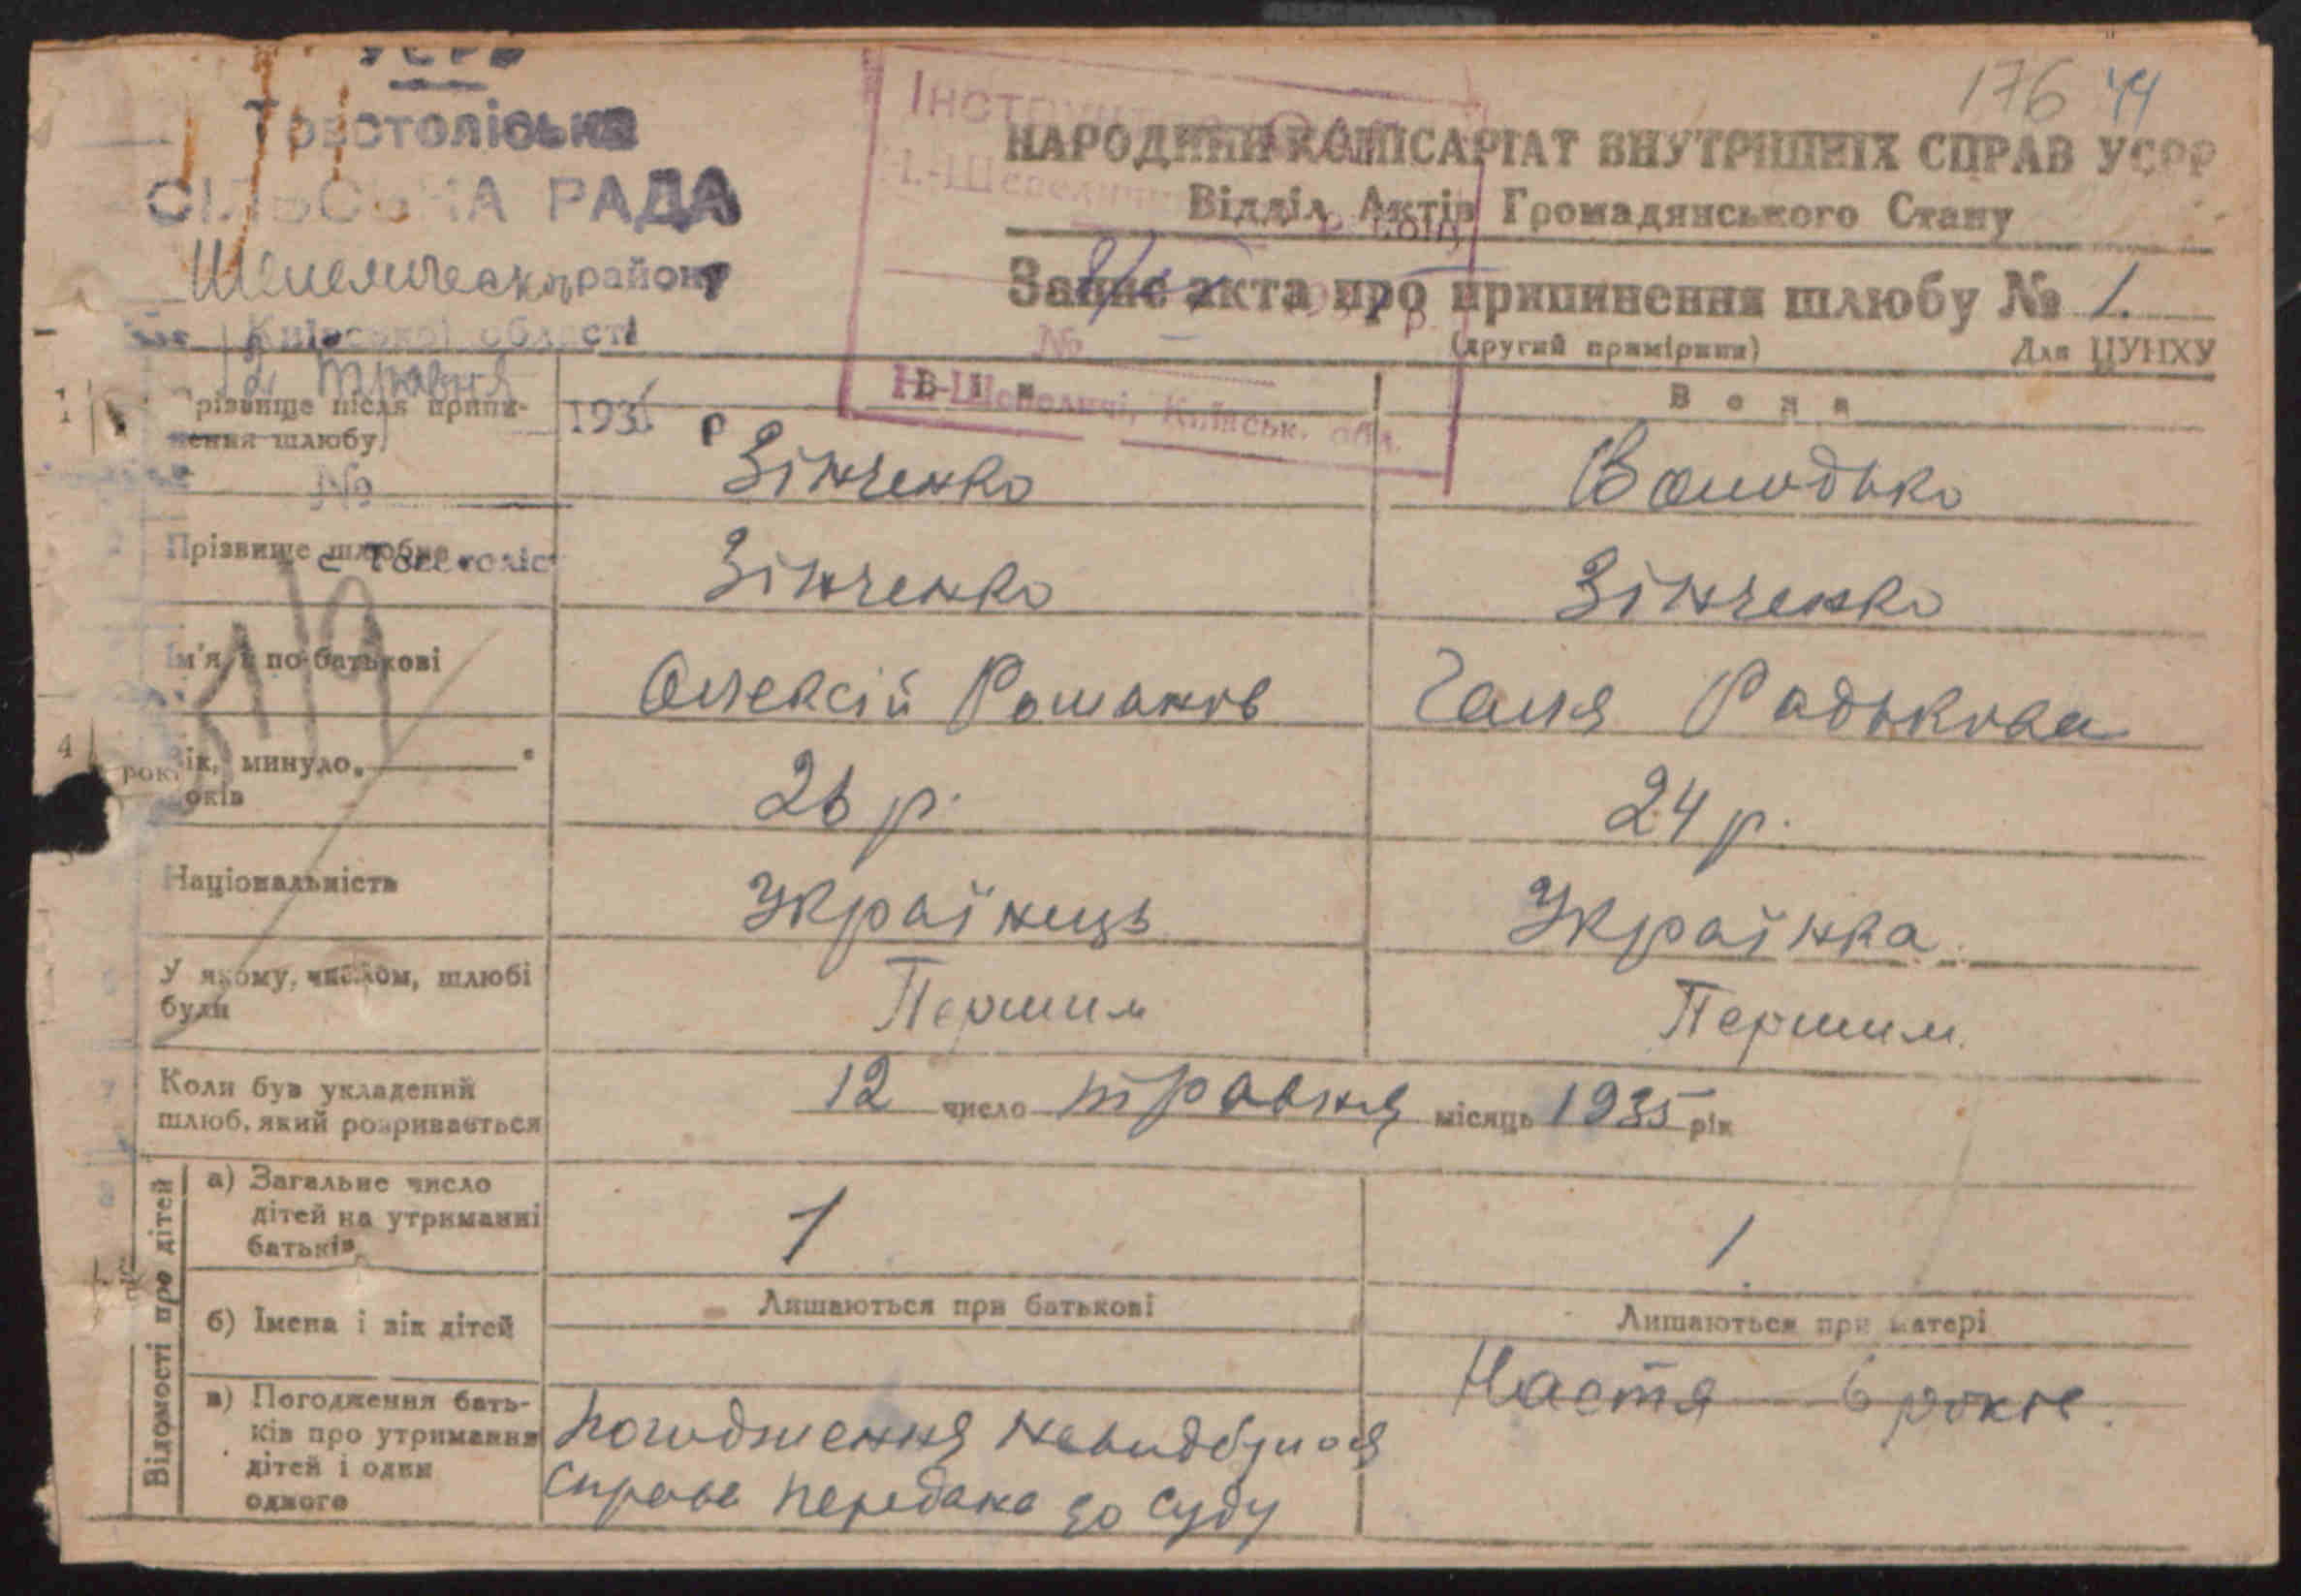 176 44
УСРР
Товстоліська
СІЛЬСЬКА РАДА
Шепелическ району
Київської області
2. травня
1936 р
№
с Товстоліс
НАРОДНИЙ КОМІСАРІАТ ВНУТРІШНІХ СПРАВ УСРР
Відділ Актів Громадянського Стану
Запис акта про припинення шлюбу № 1.
(другий примірник) Для ЦУНХУ
№
Н-Шепеличі, Київськ. обл.
Він Вона
1 Прізвище після припинення шлюбу Зінченко Володько
Прізвище шлюбне Зінченко Зінченко
Ім'я і по-батькові Олексій Романов Галя Радькова
4 Вік, минуло років 26 р. 24 р.
Національність Українець Українка
У якому, числом, шлюбі
були Першим Першим
Коли був укладений
шлюб, який розривається 12 число травня місяць 1935 рік
Відомості про дітей
а) Загальне число
дітей на утриманні
батьків 1 1.
б) Імена і вік дітей Лишаються при батькові Лишаються при матері
Настя 6 років.
в) Погодження бать-
ків про утримання
дітей і один
одного
погодження невидбулося
справа передана до суду